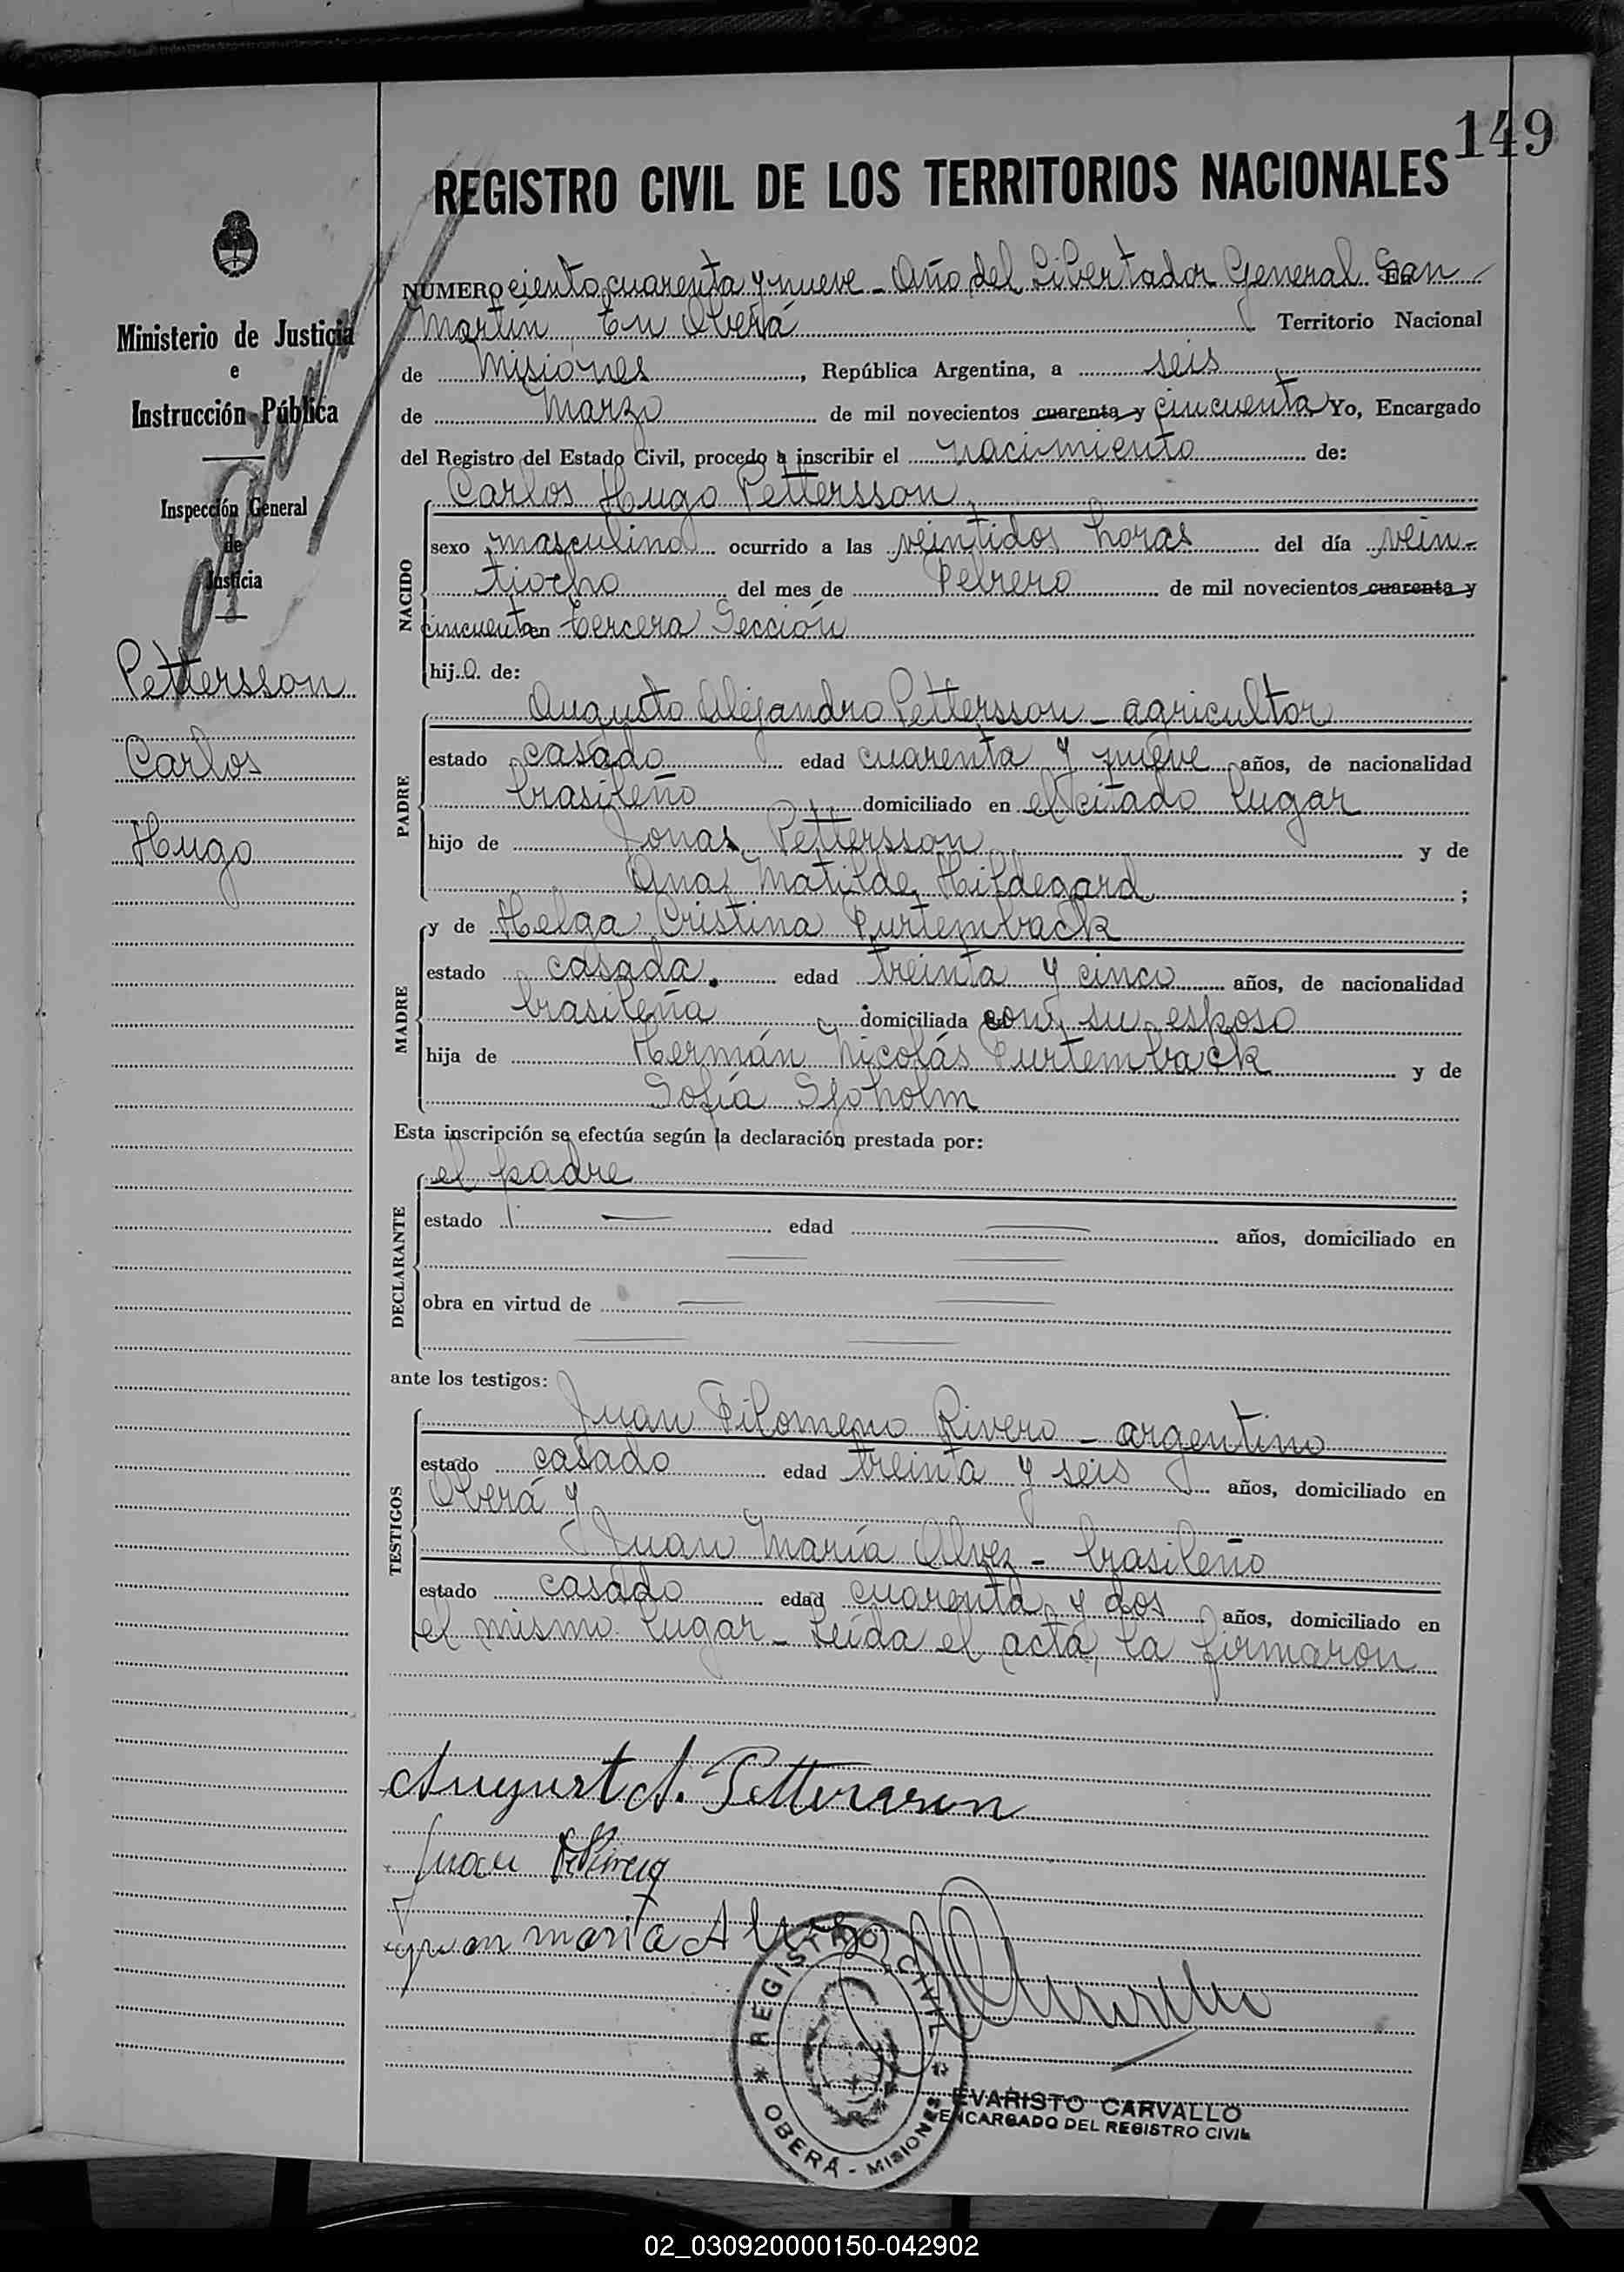 149
REGISTRO CIVIL DE LOS TERRITORIOS NACIONALES
Ministerio de Justicia
e
Instrucción Pública
Inspección General
de
Justicia
Pettersson
Carlos
Hugo
NÚMERO ciento cuarenta y nueve - Año del Libertador General San
Martín En Oberá Territorio Nacional
de Misiones, República Argentina, a seis
de Marzo de mil novecientos cuarenta y cincuenta Yo, Encargado
del Registro del Estado Civil, procedo a inscribir el nacimiento de:
Carlos Hugo Pettersson
NACIDO
sexo masculino ocurrido a las veintidos horas del día vein-
tiocho del mes de Febrero de mil novecientos cuarenta y
cincuenta en tercera Sección
hijo de:
PADRE
Augusto Alejandro Pettersson - agricultor
estado casado edad cuarenta y nueve años, de nacionalidad
brasileño domiciliado en el citado lugar
hijo de Jonas Pettersson y de
Ana Matilde Hildegard ;
MADRE
y de Helga Cristina Purtemback
estado casada edad treinta y cinco años, de nacionalidad
brasileña domiciliada con su esposo
hija de Hermán Nicolás Purtemback y de
Sofía Sjoholm
Esta inscripción se efectúa según la declaración prestada por:
DECLARANTE
el padre
estado — edad — años, domiciliado en
— —
obra en virtud de — —
— —
ante los testigos:
TESTIGOS
Juan Filomeno Rivero - argentino
estado casado edad treinta y seis años, domiciliado en
Oberá y
Juan María Alvez - brasileño
estado casado edad cuarenta y dos años, domiciliado en
el mismo lugar - Leída el acta, la firmaron
August A. Pettersson
Juan
Juan maria Alvez
REGISTRO CIVIL
OBERÁ - MISIONES
EVARISTO CARVALLO
ENCARGADO DEL REGISTRO CIVIL
02_030920000150-042902